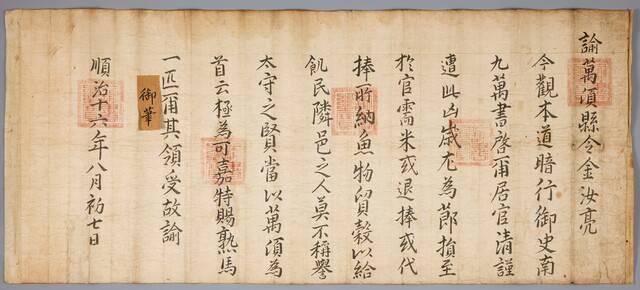 諭萬頃縣令金汝亮
今觀本道暗行御史南
九萬書啓爾居官清謹
遭此凶歲尤為節損至
於官需米或退捧或代
捧所納魚物貿穀以給
飢民隣邑之人莫不稱譽
太守之賢當以萬頃為
首云極為可嘉特賜熟馬
一匹爾其領受故諭
御華
順治十六年八月初七日